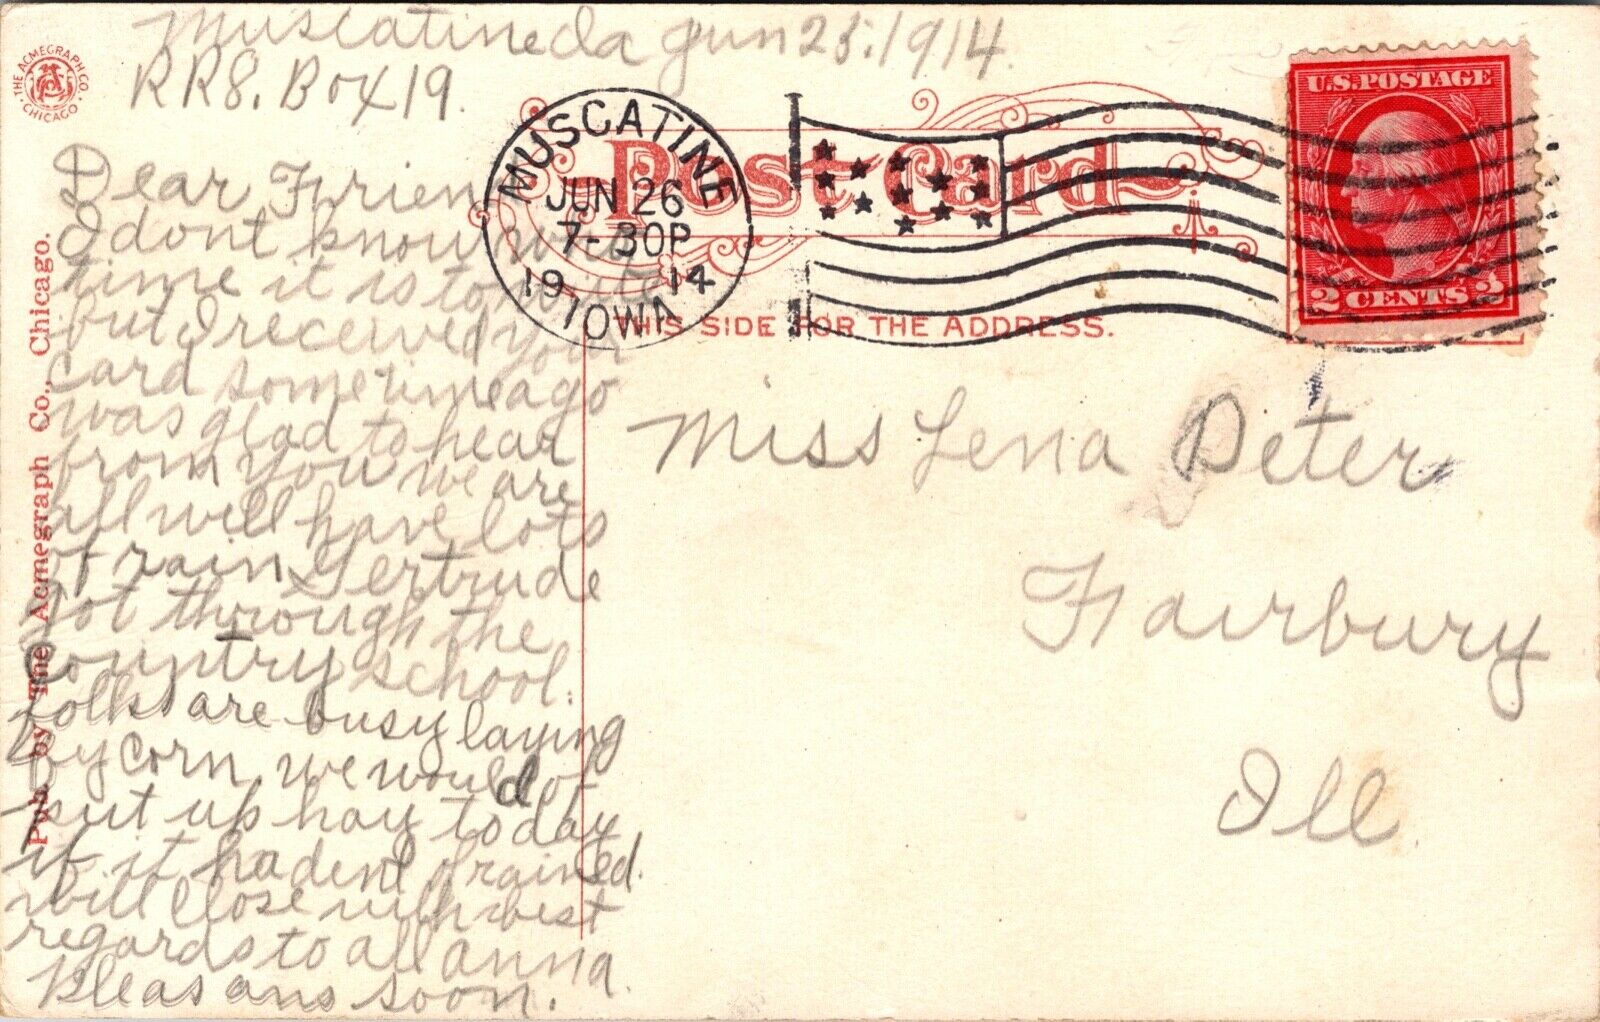 Muscatine Ia Jun 25. 1914.
RR8. Box 19.
THE ACMEGRAPH CO.
CHICAGO
Post Card
MUSCATINE
JUN 26
7-30P
1914
IOWA
U.S. POSTAGE
2 CENTS 2
THIS SIDE FOR THE ADDRESS.
Pub. by The Acmegraph Co., Chicago.
Dear Frien
I dont know what
time it is to write
but I received your
card sometime ago
was glad to hear
from you we are
all well have lots
of rain Gertrude
got through the
Country school.
folks are busy laying
by corn, we would of
put up hay today
if it hadent of rained.
will close with best
regards to all Anna.
Pleas ans soon.
Miss Lena Peter
Fairbury
Ill